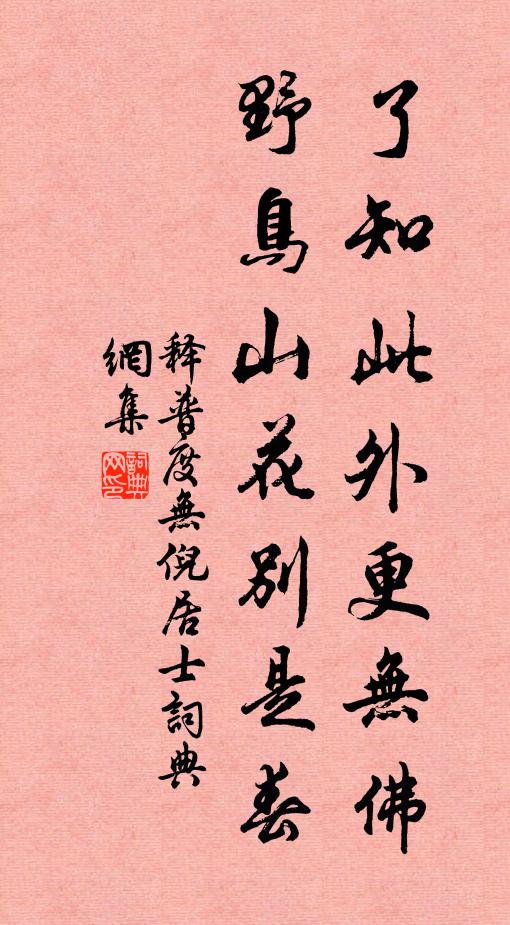 了知此外更無佛
野鳥山花別是春
释普度無倪居士詞典
網集
詞典
网印